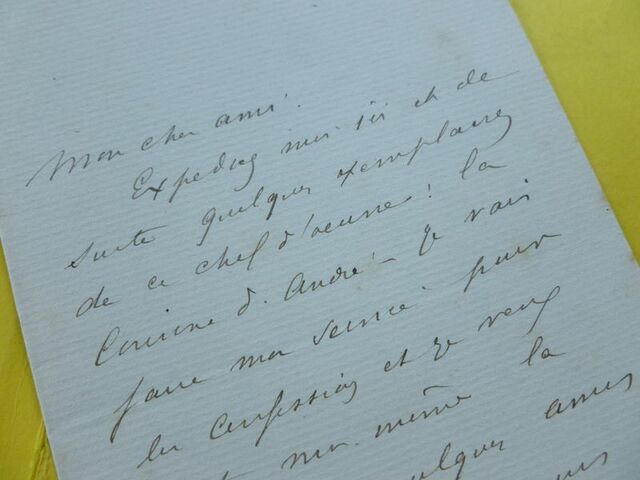 Mon cher ami.
Expediez moi ici et de
suite quelques exemplaires
de ce chef d'oeuvre! la
Cousine d. André - Je vais
faire mon service pour
les Confessions et je veux
moi même la
quelques amis